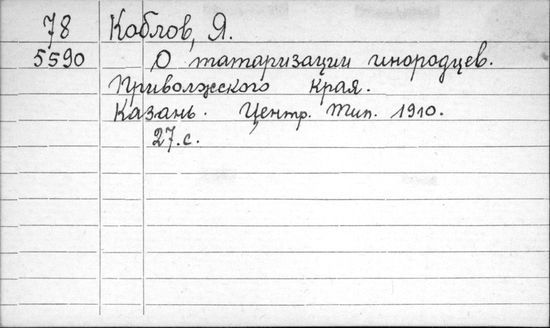 78 Коблов, Я.
5590 О татаризации инородцев.
Приволжского края.
Казань. Центр. тип. 1910.
27.с.